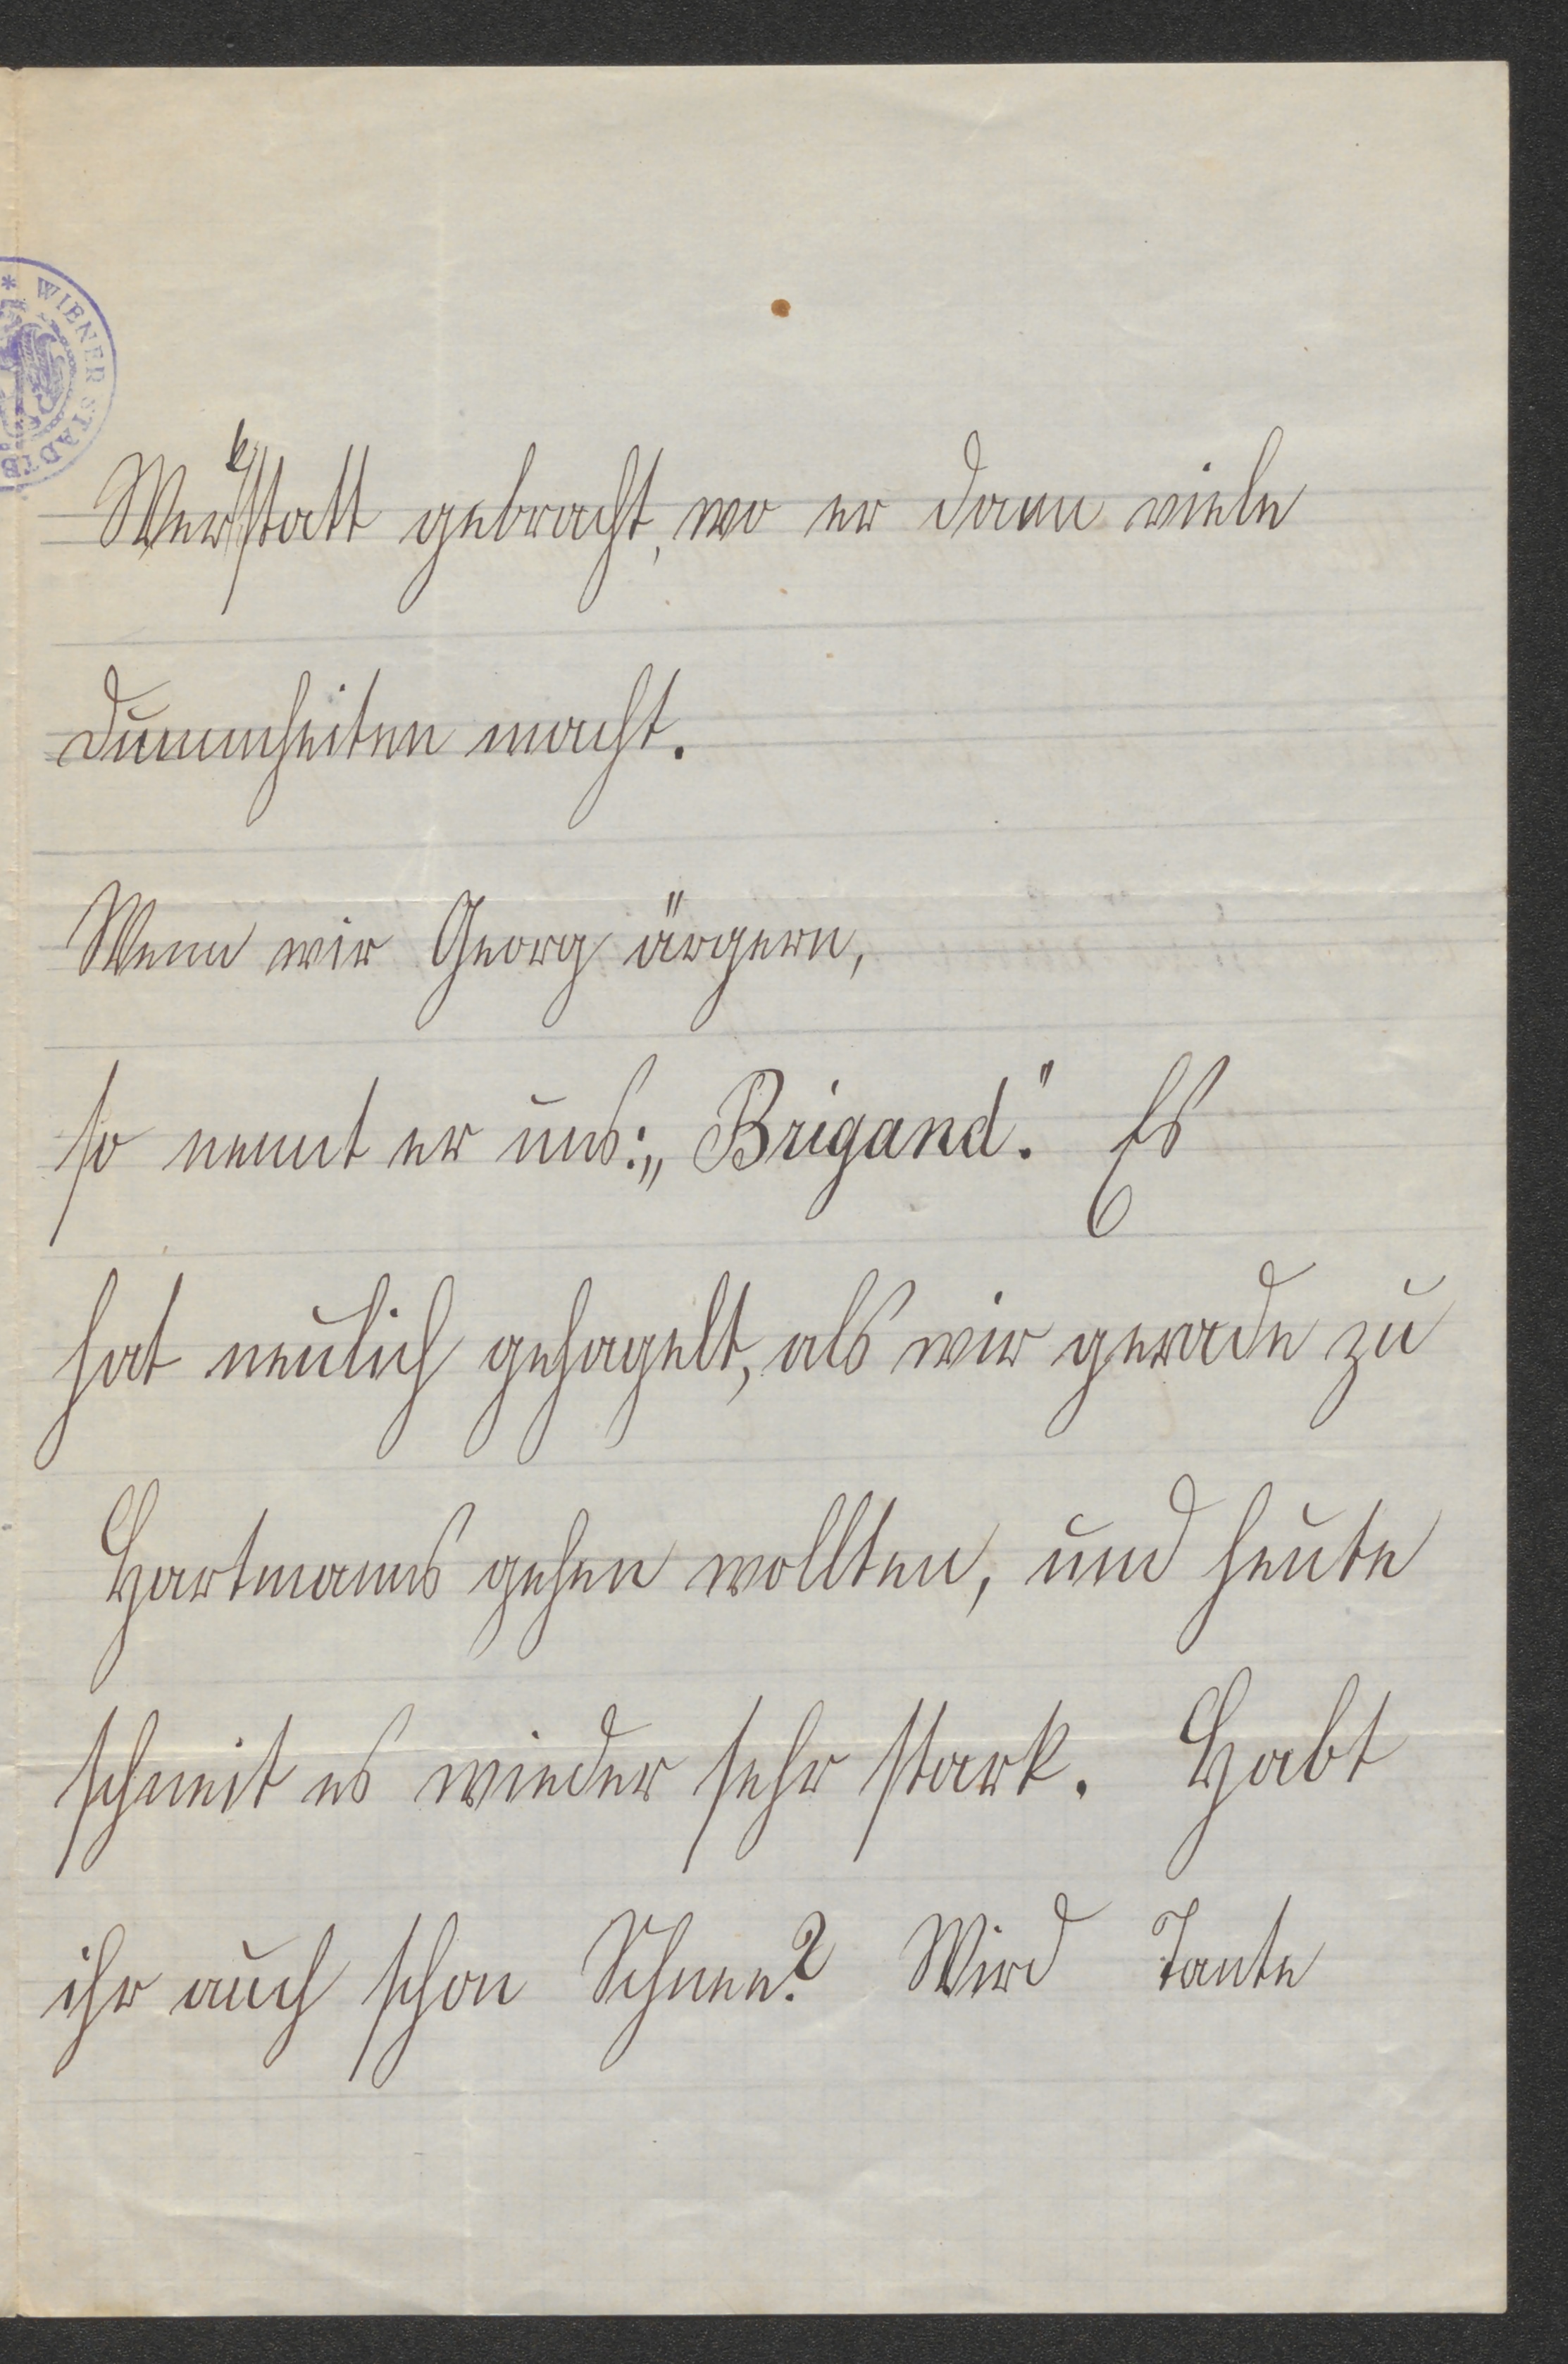 * WIENER STADTB
Werkstatt gebracht, wo er dann viele
Dummheiten macht.
Wenn wir Georg ärgern,
so nennt er uns: „Brigand." Es
hat neulich gehagelt, als wir gerade zu
Hartmanns gehen wollten, und heute
schneit es wieder sehr stark. Habt
ihr auch schon Schnee? Wird Tante